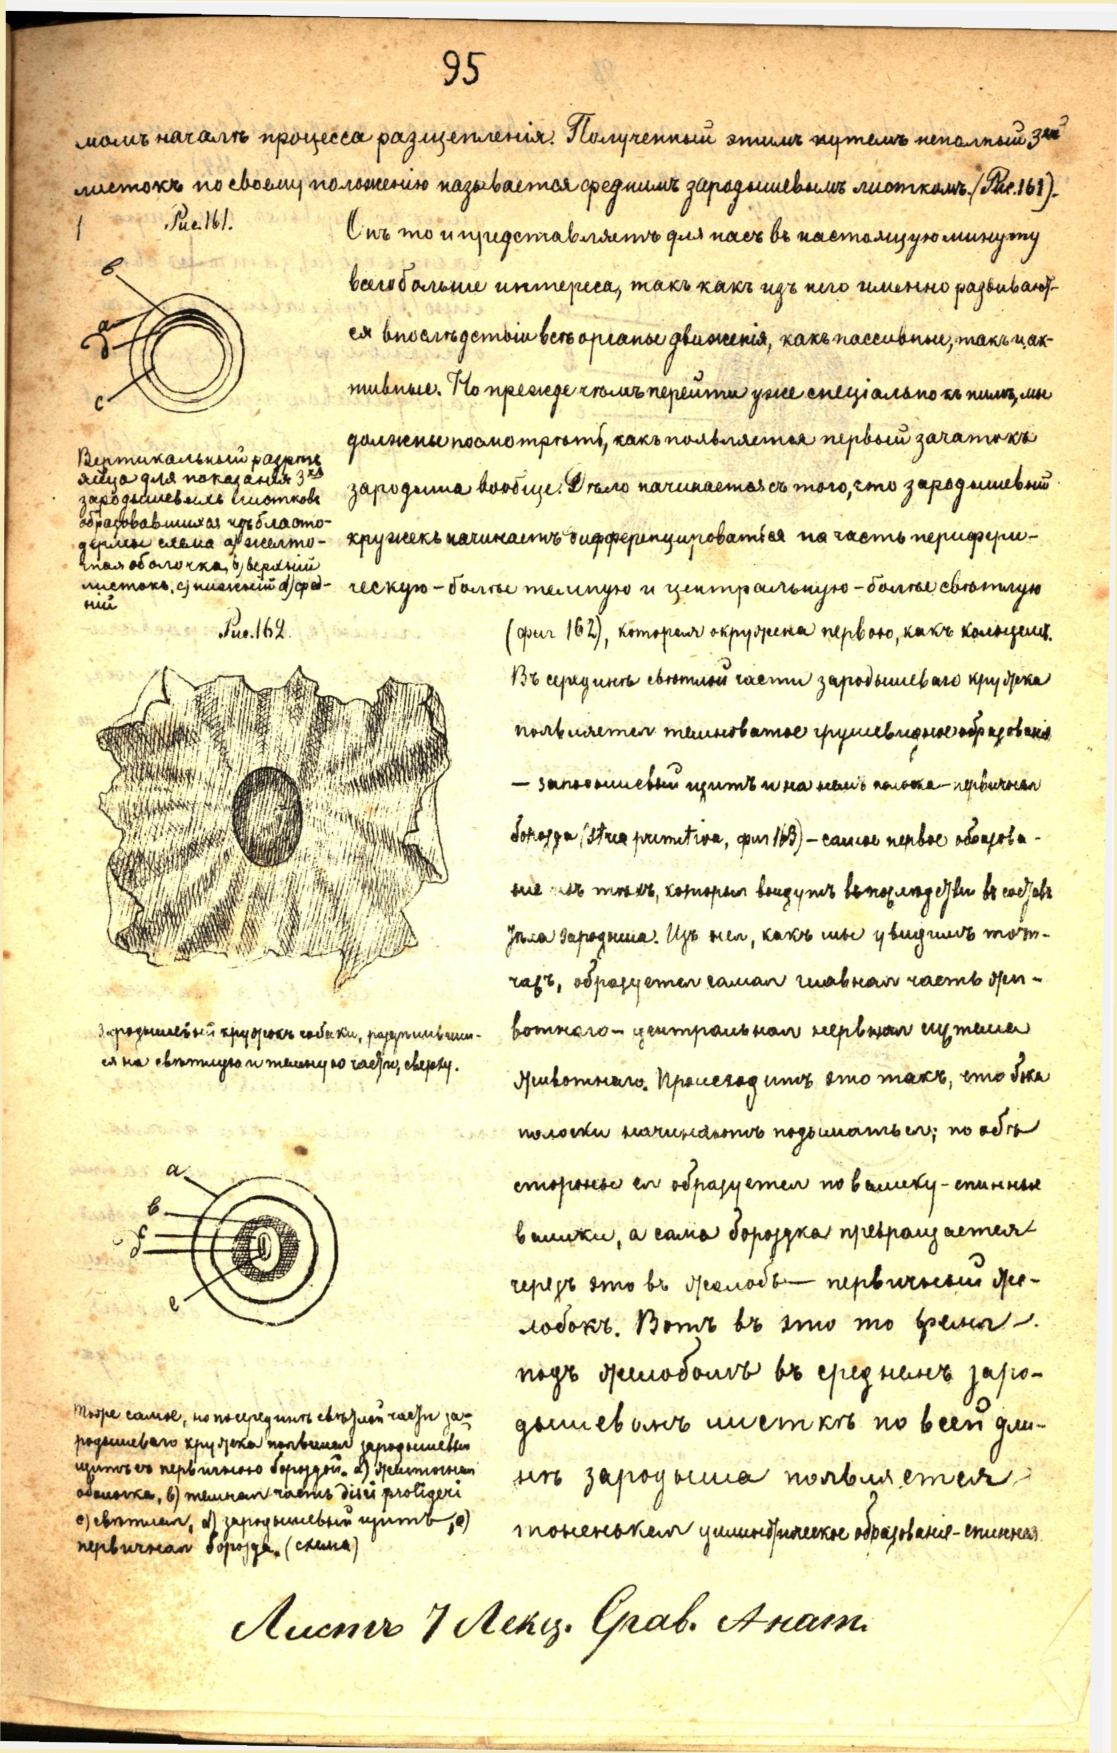 95
момъ началѣ процесса разщепленія. Полученный этимъ путемъ неполный 3ий
листокъ по своему положенію называется среднимъ зародышевымъ листкомъ. (Рис. 161).
Рис. 161.
в
а
d
с
Вертикальный разрѣзъ
яйца для показанія 3хъ
зародышевыхъ листковъ
образовавшихся изъ бласто-
дермы схема а) желто-
чная оболочка, в) верхній
листокъ, с) нижній d) сред-
ній
Онъ то и представляетъ для насъ въ настоящую минуту
всего больше интереса, такъ какъ изъ него именно развивают-
ся впослѣдствіи всѣ органы движенія, какъ пассивные, такъ и ак-
тивные. Но прежде чѣмъ перейти уже спеціально къ нимъ, мы
должны посмотрѣть, какъ появляется первый зачатокъ
зародыша вообще. Дѣло начинается съ того, что зародышевый
кружекъ начинаетъ дифференцироваться на часть перифери-
ческую – болѣе темную и центральную – болѣе свѣтлую
(фиг 162), которая окружена первою, какъ кольцемъ.
Въ серединѣ свѣтлой части зародышеваго кружка
появляется темноватое грушевидное образованіе
– зародышевый щитъ и на немъ полоска – первичная
борозда (Stria primitiva, фиг 163) – самое первое образова-
ніе изъ тѣхъ, которыя войдутъ впослѣдствіи въ составъ
тѣла зародыша. Изъ нея, какъ мы увидимъ тот-
часъ, образуется самая главная часть жи-
вотнаго – центральная нервная система
животнаго. Происходитъ это такъ, что бока
полоски начинаютъ подыматься; по обѣ
стороны ея образуется по валику – спинные
валики, а сама бороздка превращается
черезъ это въ жолобъ – первичный же-
лобокъ. Вотъ въ это то время
подъ желобомъ въ среднемъ заро-
дышевомъ листкѣ по всей дли-
нѣ зародыша появляется
тоненькая цилиндрическое образованіе – спинная
Рис. 162.
Зародышевый кружокъ собаки, раздѣливший-
ся на свѣтлую и темную части, сверху.
а
в
с
d
е
Тоже самое, но посерединѣ свѣтлой части за-
родышеваго кружка появился зародышевый
щитъ съ первичною бороздой. а) желточная
оболочка, в) темная часть disci proligeri
с) свѣтлая, d) зародышевый щитъ, е)
первичная борозда. (схема)
Листъ 7 Лекц. Срав. Анат.